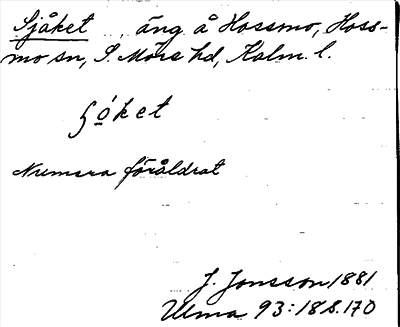 Sjåket .. , äng å Hossmo, Hoss-
mo sn, S. Möre hd, Kalm. l.
ʃó̲ket
Numera föråldrat
J. Jonsson 1881
Ulma 93:18 s. 170